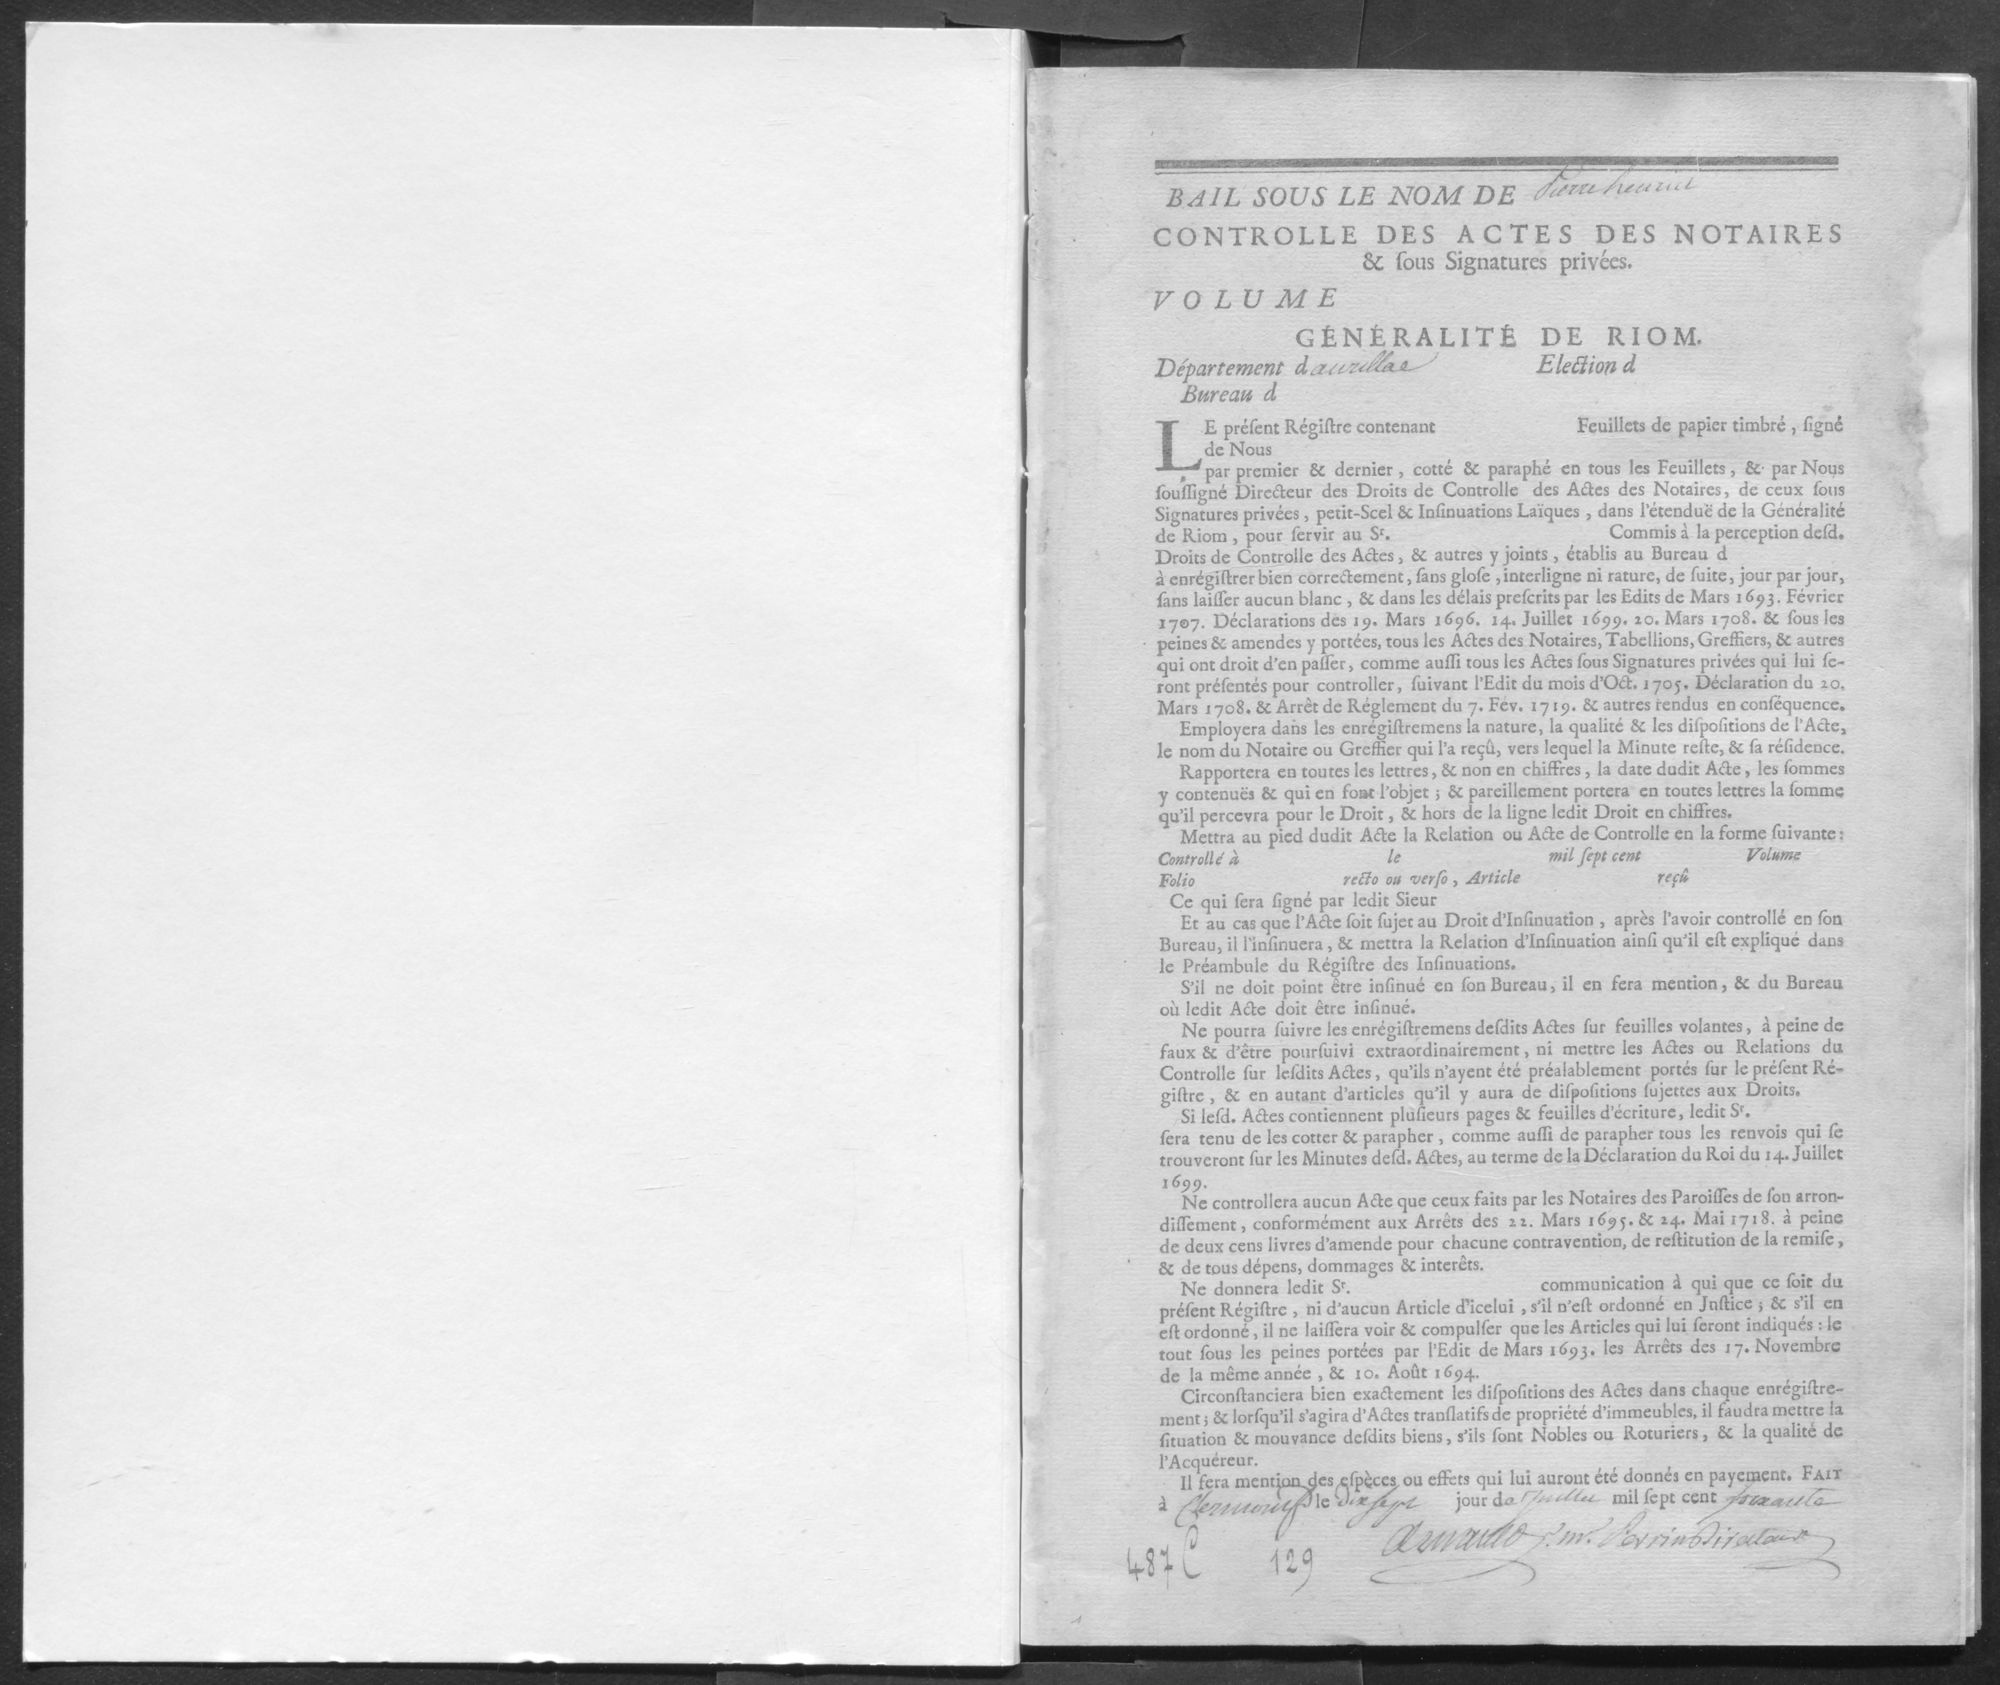 BAIL SOUS LE NOM DE Pierre henriet
CONTROLLE DES ACTES DES NOTAIRES
& ſous Signatures privées.
VOLUME
GÉNÉRALITÉ DE RIOM.
Département d aurillac Election d
Bureau d
LE préſent Régiſtre contenant Feuillets de papier timbré, ſigné
de Nous
par premier & dernier, cotté & paraphé en tous les Feuillets, & par Nous
ſouſſigné Directeur des Droits de Controlle des Actes des Notaires, de ceux ſous
Signatures privées, petit-Scel & Inſinuations Laïques, dans l'étenduë de la Généralité
de Riom, pour ſervir au Sr. Commis à la perception deſd.
Droits de Controlle des Actes, & autres y joints, établis au Bureau d
à enrégiſtrer bien correctement, ſans gloſe, interligne ni rature, de ſuite, jour par jour,
ſans laiſſer aucun blanc, & dans les délais preſcrits par les Edits de Mars 1693. Février
1707. Déclarations des 19. Mars 1696. 14. Juillet 1699. 20. Mars 1708. & ſous les
peines & amendes y portées, tous les Actes des Notaires, Tabellions, Greffiers, & autres
qui ont droit d'en paſſer, comme auſſi tous les Actes ſous Signatures privées qui lui ſe-
ront préſentés pour controller, ſuivant l'Edit du mois d'Oct. 1705. Déclaration du 20.
Mars 1708. & Arrêt de Réglement du 7. Fév. 1719. & autres rendus en conſéquence.
Employera dans les enrégiſtremens la nature, la qualité & les diſpoſitions de l'Acte,
le nom du Notaire ou Greffier qui l'a reçû, vers lequel la Minute reſte, & ſa réſidence.
Rapportera en toutes les lettres, & non en chiffres, la date dudit Acte, les ſommes
y contenuës & qui en font l'objet; & pareillement portera en toutes lettres la ſomme
qu'il percevra pour le Droit, & hors de la ligne ledit Droit en chiffres.
Mettra au pied dudit Acte la Relation ou Acte de Controlle en la forme ſuivante:
Controllé à le mil ſept cent Volume
Folio recto ou verſo, Article reçû
Ce qui ſera ſigné par ledit Sieur
Et au cas que l'Acte ſoit ſujet au Droit d'Inſinuation, après l'avoir controllé en ſon
Bureau, il l'inſinuera, & mettra la Relation d'Inſinuation ainſi qu'il eſt expliqué dans
le Préambule du Régiſtre des Inſinuations.
S'il ne doit point être inſinué en ſon Bureau, il en fera mention, & du Bureau
où ledit Acte doit être inſinué.
Ne pourra ſuivre les enrégiſtremens deſdits Actes ſur feuilles volantes, à peine de
faux & d'être pourſuivi extraordinairement, ni mettre les Actes ou Relations du
Controlle ſur leſdits Actes, qu'ils n'ayent été préalablement portés ſur le préſent Ré-
giſtre, & en autant d'articles qu'il y aura de diſpoſitions ſujettes aux Droits.
Si leſd. Actes contiennent pluſieurs pages & feuilles d'écriture, ledit Sr.
ſera tenu de les cotter & parapher, comme auſſi de parapher tous les renvois qui ſe
trouveront ſur les Minutes deſd. Actes, au terme de la Déclaration du Roi du 14. Juillet
1699.
Ne controllera aucun Acte que ceux faits par les Notaires des Paroiſſes de ſon arron-
diſſement, conformément aux Arrêts des 22. Mars 1695. & 24. Mai 1718. à peine
de deux cens livres d'amende pour chacune contravention, de reſtitution de la remiſe,
& de tous dépens, dommages & interêts.
Ne donnera ledit Sr. communication à qui que ce ſoit du
préſent Régiſtre, ni d'aucun Article d'icelui, s'il n'eſt ordonné en Juſtice; & s'il en
eſt ordonné, il ne laiſſera voir & compulſer que les Articles qui lui ſeront indiqués: le
tout ſous les peines portées par l'Edit de Mars 1693. les Arrêts des 17. Novembre
de la même année, & 10. Août 1694.
Circonſtanciera bien exactement les diſpoſitions des Actes dans chaque enrégiſtre-
ment; & lorſqu'il s'agira d'Actes tranſlatifs de propriété d'immeubles, il faudra mettre la
ſituation & mouvance deſdits biens, s'ils ſont Nobles ou Roturiers, & la qualité de
l'Acquéreur.
Il fera mention des eſpèces ou effets qui lui auront été donnés en payement. FAIT
à Clermont le dix sept jour de Juillet mil ſept cent soixante
Arnauld p. mr. Perrin Directeur
487 C 129